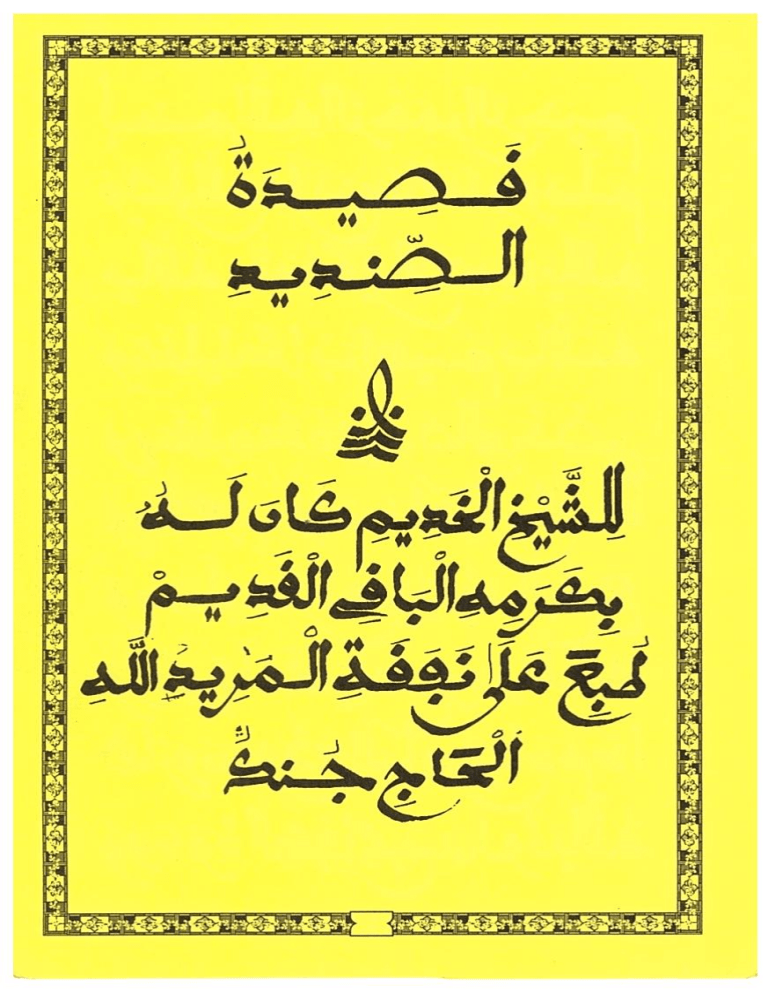 قَصِيدَةُ
الصِّنديدِ
لِلشَّيْخِ الْخَدِيمِ كَانَ لَهُ
بِكَرَمِهِ الْبَاقِي الْقَدِيمْ
طُبِعَ عَلَى نَفَقَةِ الْمُرِيدِ اللَّهِ
اَلْحَاجِ جُنكٌ